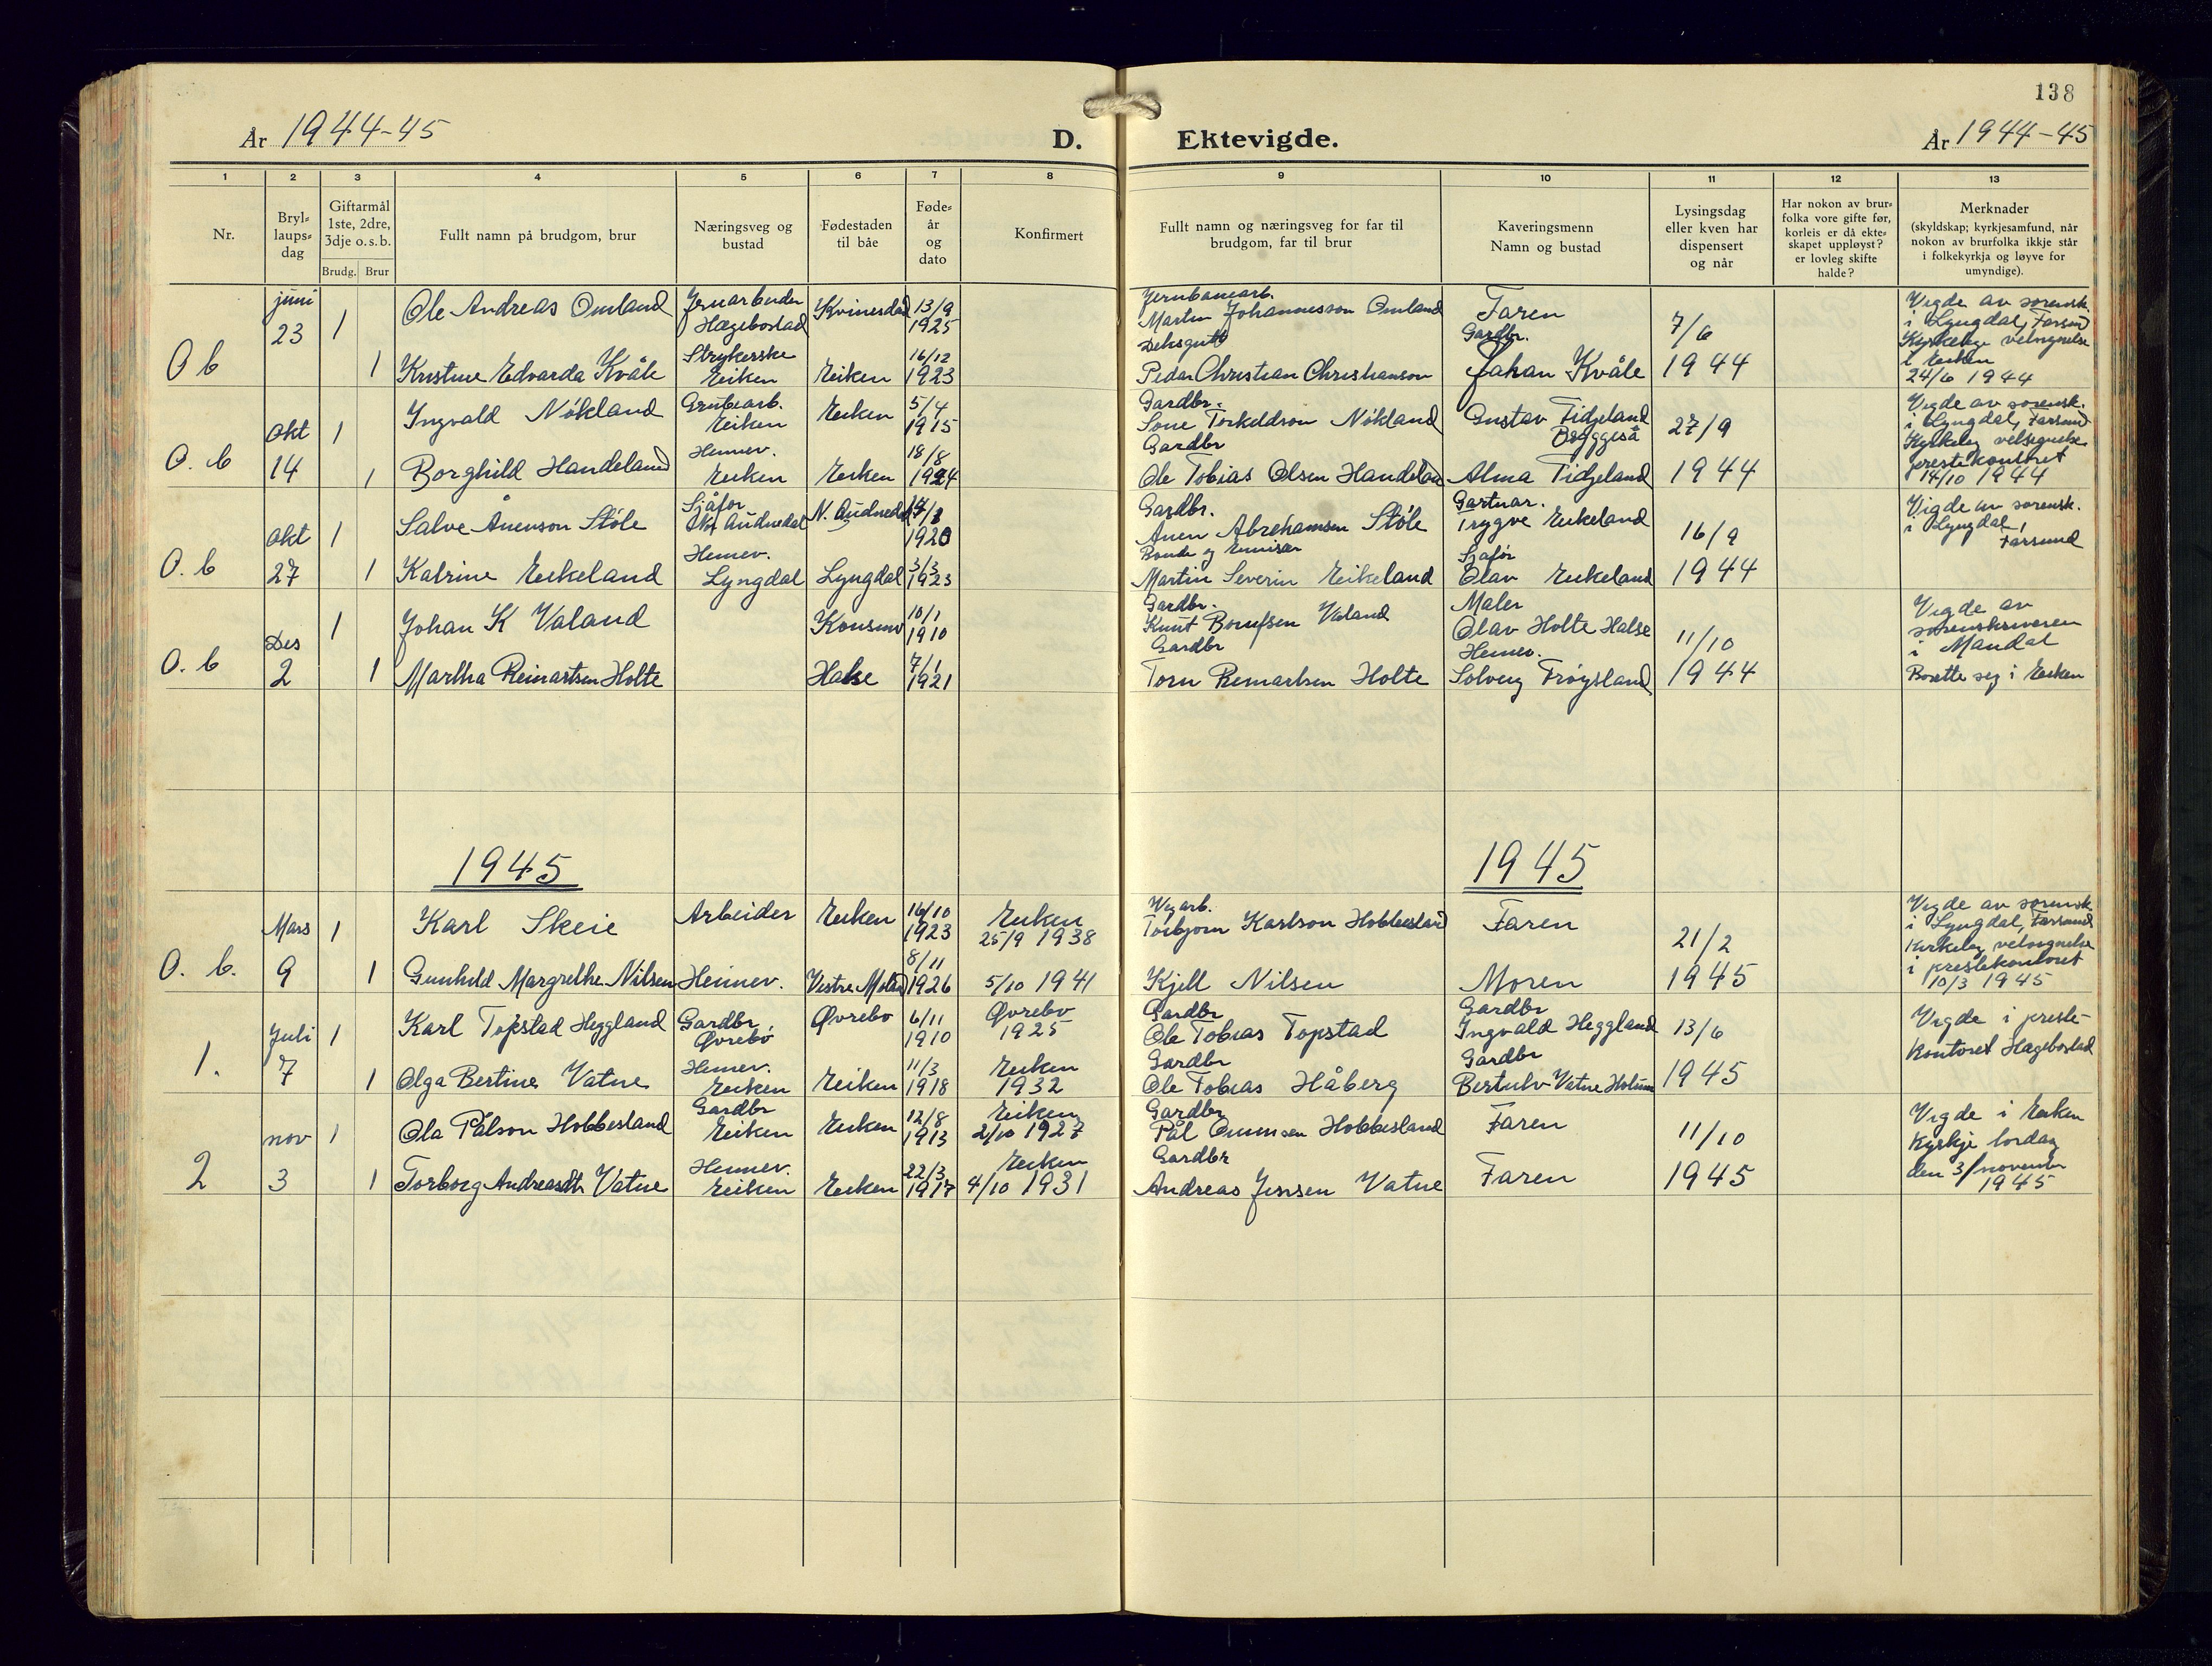 138
År 1944-45
D.
Ektevigde.
År 1944-45
1 2 3 4 5 6 7 8 9 10 11 12 13
Nr.
Bryl-
laups-
dag
Giftarmål
1ste, 2dre,
3dje o.s.b.
Brudg. Brur
Fullt namn på brudgom, brur
Næringsveg og
bustad
Fødestaden
til båe
Føde-
år
og
dato
Konfirmert
Fullt namn og næringsveg for far til
brudgom, far til brur
Kaveringsmenn
Namn og bustad
Lysingsdag
eller kven har
dispensert
og når
Har nokon av brur-
folka vore gifte før,
korleis er då ekte-
skapet uppløyst?
er lovleg skifte
halde?
Merknader
(skyldskap; kyrkjesamfund, når
nokon av brurfolka ikkje står
i folkekyrkja og løyve for
umyndige).
O b
juni
23
1
Ole Andreas Omland
Jernarbeider
Hægebostad
Kvinesdal
13/9
1925
Jernbanearb.
Martin Johannesson Omland
Faren
7/6
1944
Vigde av sorensk.
i Lyngdal, Farsund
Kyrkeleg velsignelse
i Eiken
24/6 1944
1
Kristine Edvarda Kvåle
Strykerske
Eiken
Eiken
16/12
1923
Peder Christian Christianson
Gardbr.
Johan Kvåle
O. b
Okt
14
1
Ingvald Nökland
Grubearb.
Eiken
Eiken
5/4
1915
Gardbr.
Sone Torkeldson Nökland
Gustav Tidjeland
Byggeså
27/9
1944
Vigde av sorensk.
i Lyngdal, Farsund
Kyrkeleg velsignelse
prestekontoret
14/10 1944
1
Borghild Handeland
Heimev.
Eiken
Eiken
18/8
1924
Gardbr
Ole Tobias Olsen Handeland
Alma Tidjeland
O. b
Okt
27
1
Salve Anenson Stöle
Sjåfør
Nor Audnedal
N. Audnedal
1920
Gardbr.
Anen Abrehamsen Stöle
Gartnar.
Trygve Eikeland
16/9
1944
Vigde av sorensk.
i Lyngdal,
Farsund
1
Katrine Eikeland
Heimev.
Lyngdal
Lyngdal
3/3
1923
Bonde og Emissær
Martin Severin Eikeland
Sjafør
Olav Eikeland
O. b
Des
2
1
Johan K Valand
Konsmo
10/1
1910
Gardbr.
Knut Valand
Maler
Olav Holte Halse
11/10
1944
Vigde av
sorenskriveren
i Mandal
Bosette seg i Eiken
1
Martha Reinartsen Holte
Halse
7/1
1921
Gardbr
Torn Reinartsen Holte
Heimev.
Solveig Fröysland
1945
1945
O. b.
Mars
9
1
Karl Skeie
Arbeider
Eiken
16/10
1923
Eiken
25/9 1938
Vegarb.
Torbjorn Karlson Hobbesland
Faren
21/2
1945
Vigde av sorensk.
i Lyngdal, Farsund
kirkeleg velsignelse
i prestekontoret
10/3 1945
1
Gunhild Margrethe Nilsen
Heimev.
Vestre Moland
8/11
1926
5/10 1941
Kjell Nilsen
Moren
1.
Juli
7
1
Karl Topstad Heggland
Gardbr,
Øvrebö
Øvrebö
6/11
1910
Øvrebö
1925
Gardbr
Ole Tobias Topstad
Gardbr
Ingvald Heggland
13/6
1945
Vigde i preste-
kontoret Hægebostad
1
Olga Bertine Vatne
Heimev.
Eiken
Eiken
11/3
1918
Eiken
1932
Gardbr
Ole Tobias Håberg
Gardbr
Bertulv Vatne Holum
2
nov
3
1
Ola Pålson Hobbesland
Gardbr
Eiken
Eiken
12/8
1913
Eiken
2/10 1927
Gardbr
Pål Omunsen Hobbesland
Faren
11/10
1945
Vigde i Eiken
Kyrkje lordag
den 3/november
1945
1
Torborg Andreasdtr Vatne
Heimev.
Eiken
Eiken
22/3
1917
Eiken
4/10 1931
Gardbr
Andreas Jensen Vatne
Faren